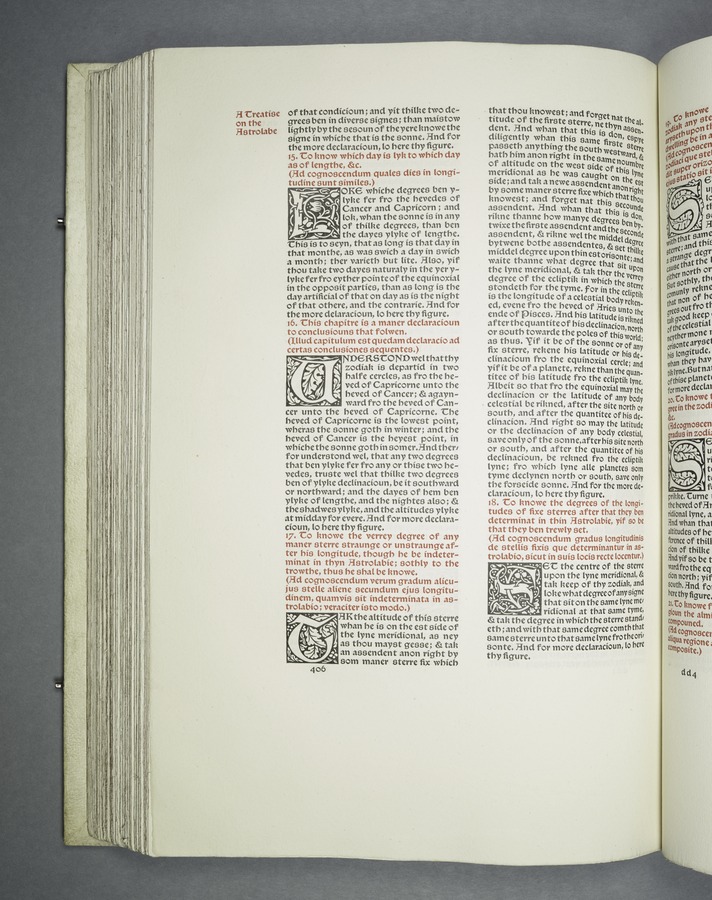 A Treatise
on the
Astrolabe
of that condicioun; and yit thilke two de-
grees ben in diverse signes; than maistow
lightly by the sesoun of the yere knowe the
signe in whiche that is the sonne. And for
the more declaracioun, lo here thy figure.
15. To know which day is lyk to which day
as of lengthe, &c.
(Ad cognoscendum quales dies in longi-
tudine sunt similes.)
LOKE whiche degrees ben y-
lyke fer fro the hevedes of
Cancer and Capricorn; and
lok, whan the sonne is in any
of thilke degrees, than ben
the dayes ylyke of lengthe.
This is to seyn, that as long is that day in
that monthe, as was swich a day in swich
a month; ther varieth but lite. Also, yif
thou take two dayes naturaly in the yer y-
lyke fer fro eyther pointe of the equinoxial
in the opposit parties, than as long is the
day artificial of that on day as is the night
of that othere, and the contrarie. And for
the more delaracioun, lo here thy figure.
16. This chapitre is a maner declaracioun
to conclusiouns that folwen.
(Illud capitulum est quedam declaracio ad
certas conclusiones sequentes.)
UNDERSTOND wel that thy
zodiak is departid in two
halfe cercles, as fro the he-
ved of Capricorne unto the
heved of Cancer; & agayn-
ward fro the heved of Can-
cer unto the heved of Capricorne. The
heved of Capricorne is the lowest point,
wheras the sonne goth in winter; and the
heved of Cancer is the heyest point, in
whiche the sonne goth in somer. And ther-
for understond wel, that any two degrees
that ben ylyke fer fro any or thise two he-
vedes, truste wel that thilke two degrees
ben of ylyke declinacioun, be it southward
or northward; and the dayes of hem ben
ylyke of lengthe, and the nightes also; &
the shadwes ylyke, and the altitudes ylyke
at midday for evere. And for more declara-
cioun, lo here thy figure.
17. To knowe the verrey degree of any
maner sterre straunge or unstraunge af-
ter his longitude, though he be indeter-
minat in thyn Astrolabie; sothly to the
trowthe, thus he shal be knowe.
(Ad cognoscendum verum gradum alicu-
jus stelle aliene secundum ejus longitu-
dinem, quamvis sit indeterminata in as-
trolabio; veraciter isto modo.)
TAK the altitude of this sterre
whan he is on the est side of
the lyne meridional, as ney
as thou mayst gesse; & tak
an assendent anon right by
som maner sterre fix which
406
that thou knowest; and forget nat the al-
titude of the firste sterre, ne thyn assen-
dent. And whan that this is don, espye
diligently whan this same firste sterre
passeth anything the south westward, &
hath him anon right in the same noumbre
of altitude on the west side of this lyne
meridional as he was caught on the est
side; and tak a newe assendent anon right
by som maner sterre fixe which that thou
knowest; and forget nat this secounde
assendent. And whan that this is don,
rikne thanne how manye degrees ben by-
twixe the firste assendent and the seconde
assendent, & rikne wel the middel degree
bytwene bothe assendentes, & set thilke
middel degree upon thin est orisonte; and
waite thanne what degree that sit upon
the lyne meridional, & tak ther the verrey
degree of the ecliptik in which the sterre
stondeth for the tyme. For in the ecliptik
is the longitude of a celestial body reken-
ed, evene fro the heved of Aries unto the
ende of Pisces. And his latitude is rikned
after the quantite of his declinacion, north
or south towarde the poles of this world;
as thus. Yif it be of the sonne or of any
fix sterre, rekene his latitude or his de-
clinacioun fro the equinoxial cercle; and
yif it be of a planete, rekne than the quan-
titee of his latitude fro the ecliptik lyne.
Albeit so that fro the equinoxial may the
declinacion or the latitude of any body
celestial be rikned, after the site north or
south, and after the quantitee of his de-
clinacion. And right so may the latitude
or the declinacion of any body celestial,
save only of the sonne, after his site north
or south, and after the quantitee of his
declinacioun, be rekned fro the ecliptik
lyne; fro which lyne alle planetes som
tyme declynen north or south, save only
the forseide sonne. And for the more de-
claracioun, lo here thy figure.
18. To knowe the degrees of the longi-
tudes of fixe sterres after that they ben
determinat in thin Astrolabie, yif so be
that they ben trewly set.
(Ad cognoscendum gradus longitudinis
de stellis fixis que determinantur in as-
trolabio, sicut in suis locis recte locentur.)
SET the centre of the sterre
upon the lyne meridional, &
tak keep of thy zodiak, and
loke what degree of any signe
that sit on the same lyne me-
ridional at that same tyme,
& tak the degree in which the sterre stand-
eth; and with that same degree comth that
same sterre unto that same lyne fro the ori-
sonte. And for more declaracioun, lo here
thy figure.
19. To knowe
dd4